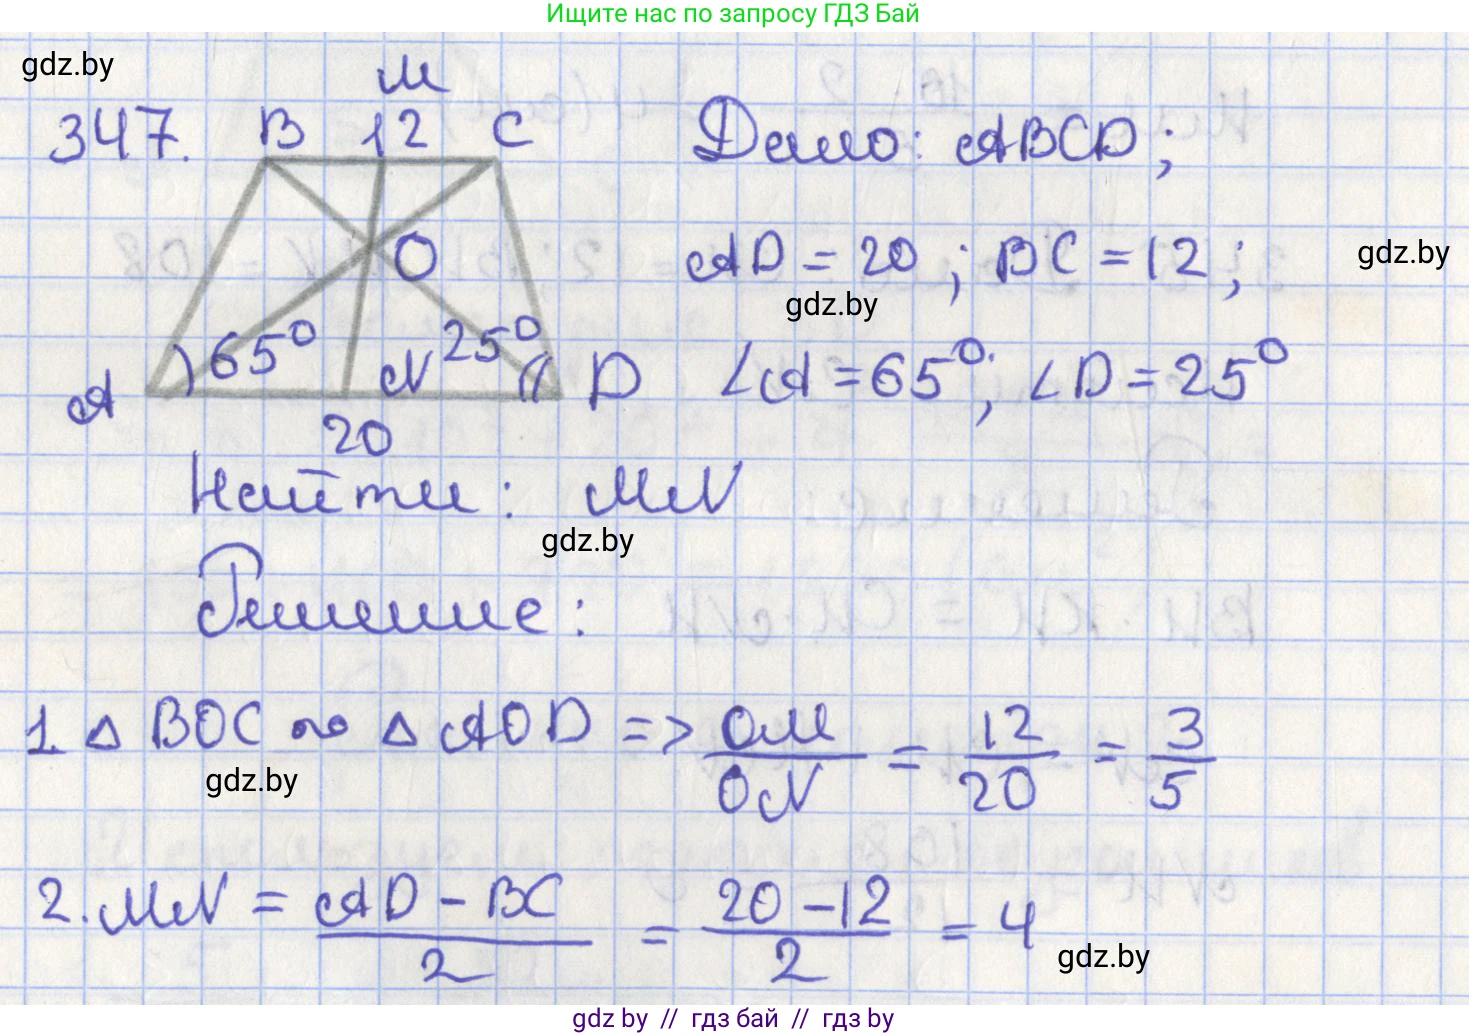 Ищите нас по запросу ГДЗ Бай
gdz.by
М
347. В 12 С Дано: АВСD;
О AD = 20; BC = 12; gdz.by
gdz.by
А 65° N 25° D ∠A = 65°; ∠D = 25°
20
Найти: MN
gdz.by
Решение:
1. △ BOC ∾ △ AOD => OM/ON = 12/20 = 3/5
gdz.by
2. MN = (AD - BC)/2 = (20 - 12)/2 = 4
gdz.by
gdz by // гдз бай // гдз by